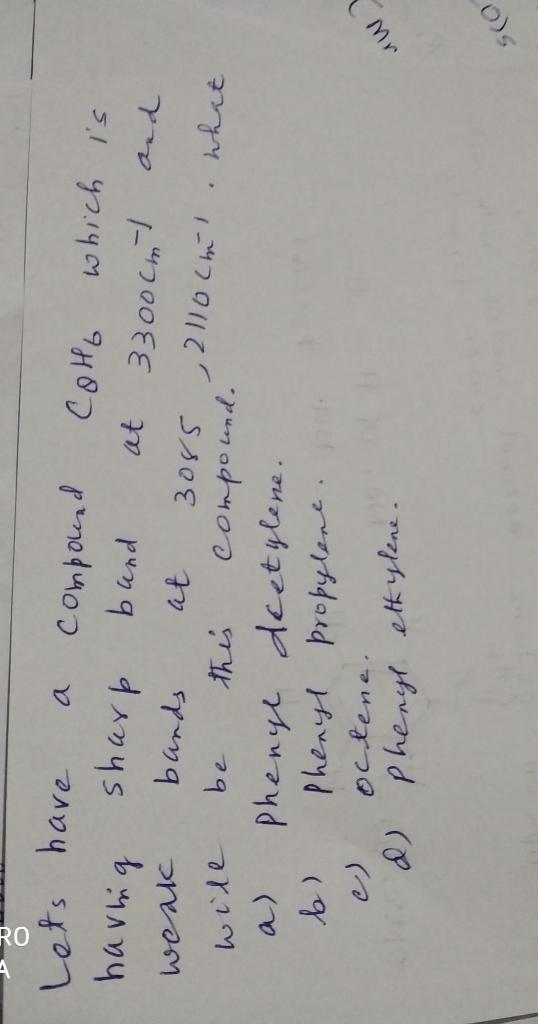 Lets have a compound C8H6 which is
having sharp band at 3300cm-1 and
weak bands at 3085 , 2110cm-1 . what
will be this compound.
a) phenyl Acetylene.
b) phenyl propylene.
c) octene.
d) phenyl ethylene.
RO
A